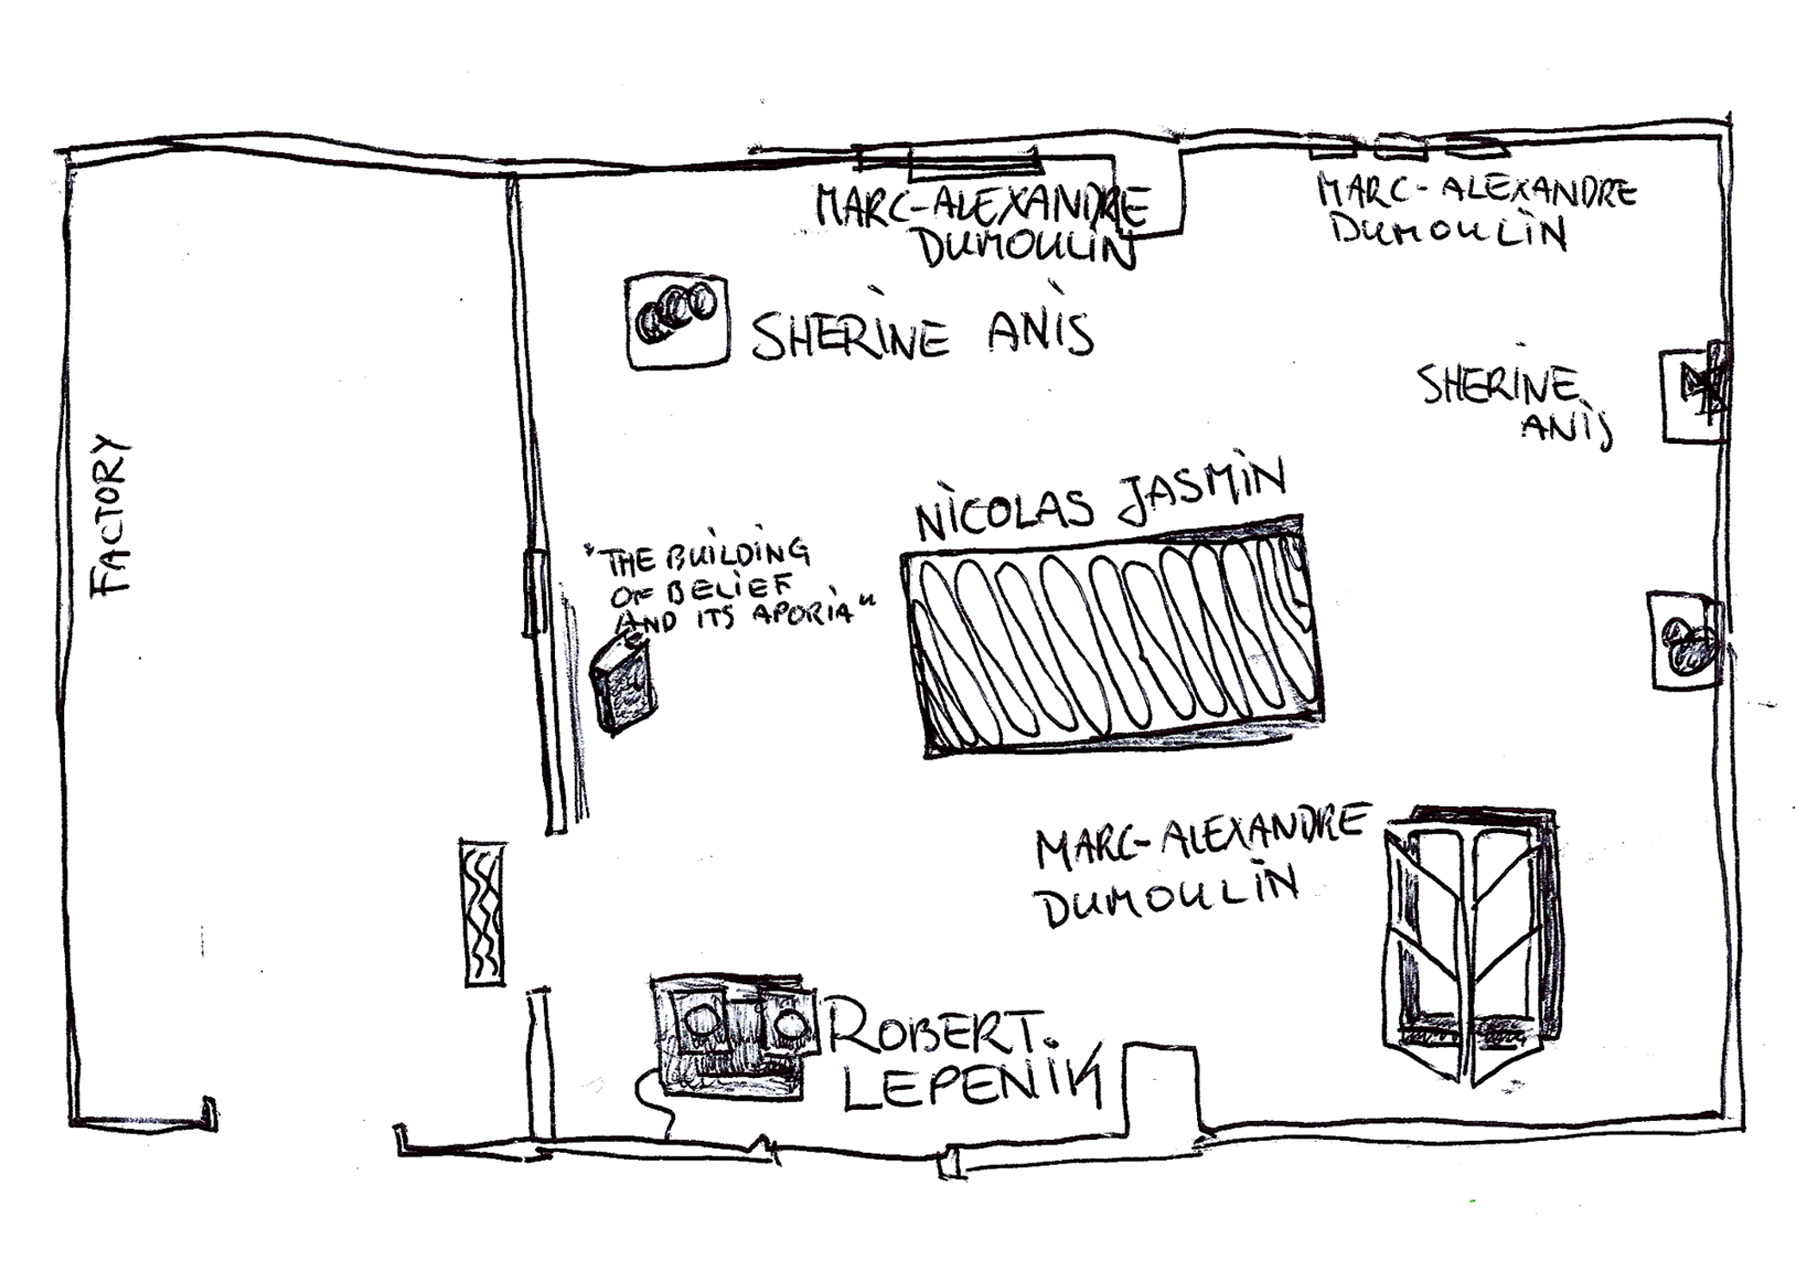 MARC-ALEXANDRE
DUMOULIN
MARC-ALEXANDRE
DUMOULIN
SHERINE ANIS
SHERINE
ANIS
FACTORY
NICOLAS JASMIN
"THE BUILDING
OF BELIEF
AND ITS APORIA"
MARC-ALEXANDRE
DUMOULIN
ROBERT.
LEPENIK